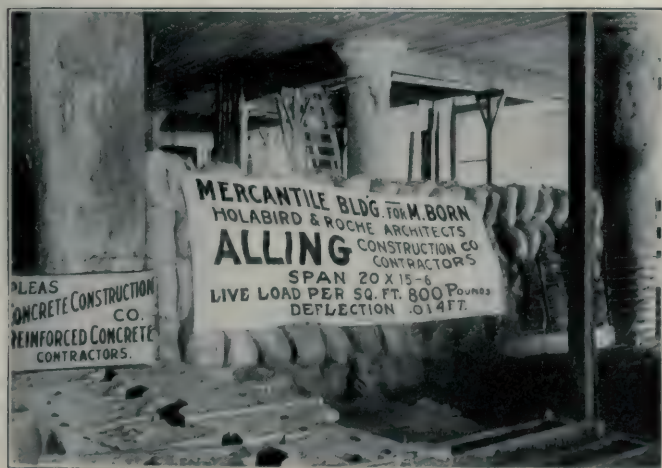 MERCANTILE BLDG. FOR M. BORN
HOLABIRD & ROCHE ARCHITECTS
ALLING CONSTRUCTION CO
CONTRACTORS
SPAN 20 X 15-6
LIVE LOAD PER SQ. FT. 800 POUNDS
DEFLECTION .014 FT.
PLEAS
ONCRETE CONSTRUCTION
CO.
REINFORCED CONCRETE
CONTRACTORS.